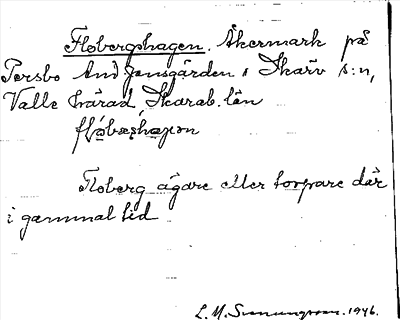 Flobergshagen. Åkermark på
Persbo And Jonsgården i Skärv s:n,
Valle härad, Skarab. län
Floberg ägare eller torpare där
i gammal tid
L. M. Svenungsson. 1946.